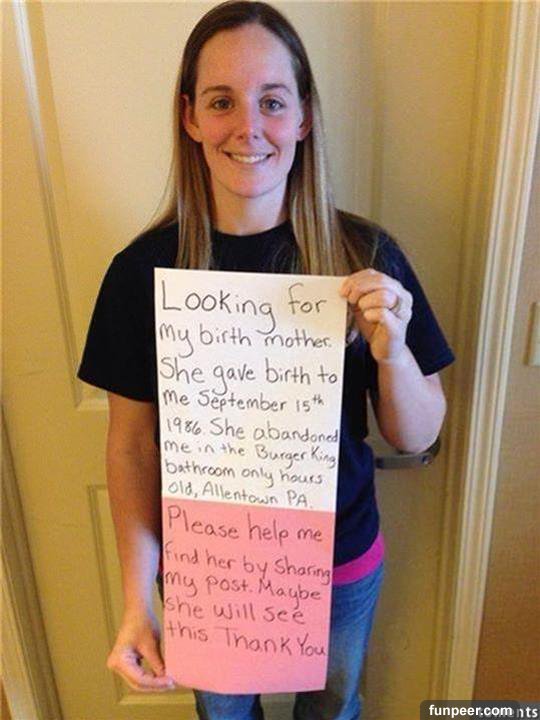 Looking for
my birth mother.
She gave birth to
me September 15th
1986. She abandoned
me in the Burger King
bathroom only hours
old, Allentown PA.
Please help me
find her by Sharing
my post. Maybe
she will see
this Thank You
funpeer.com